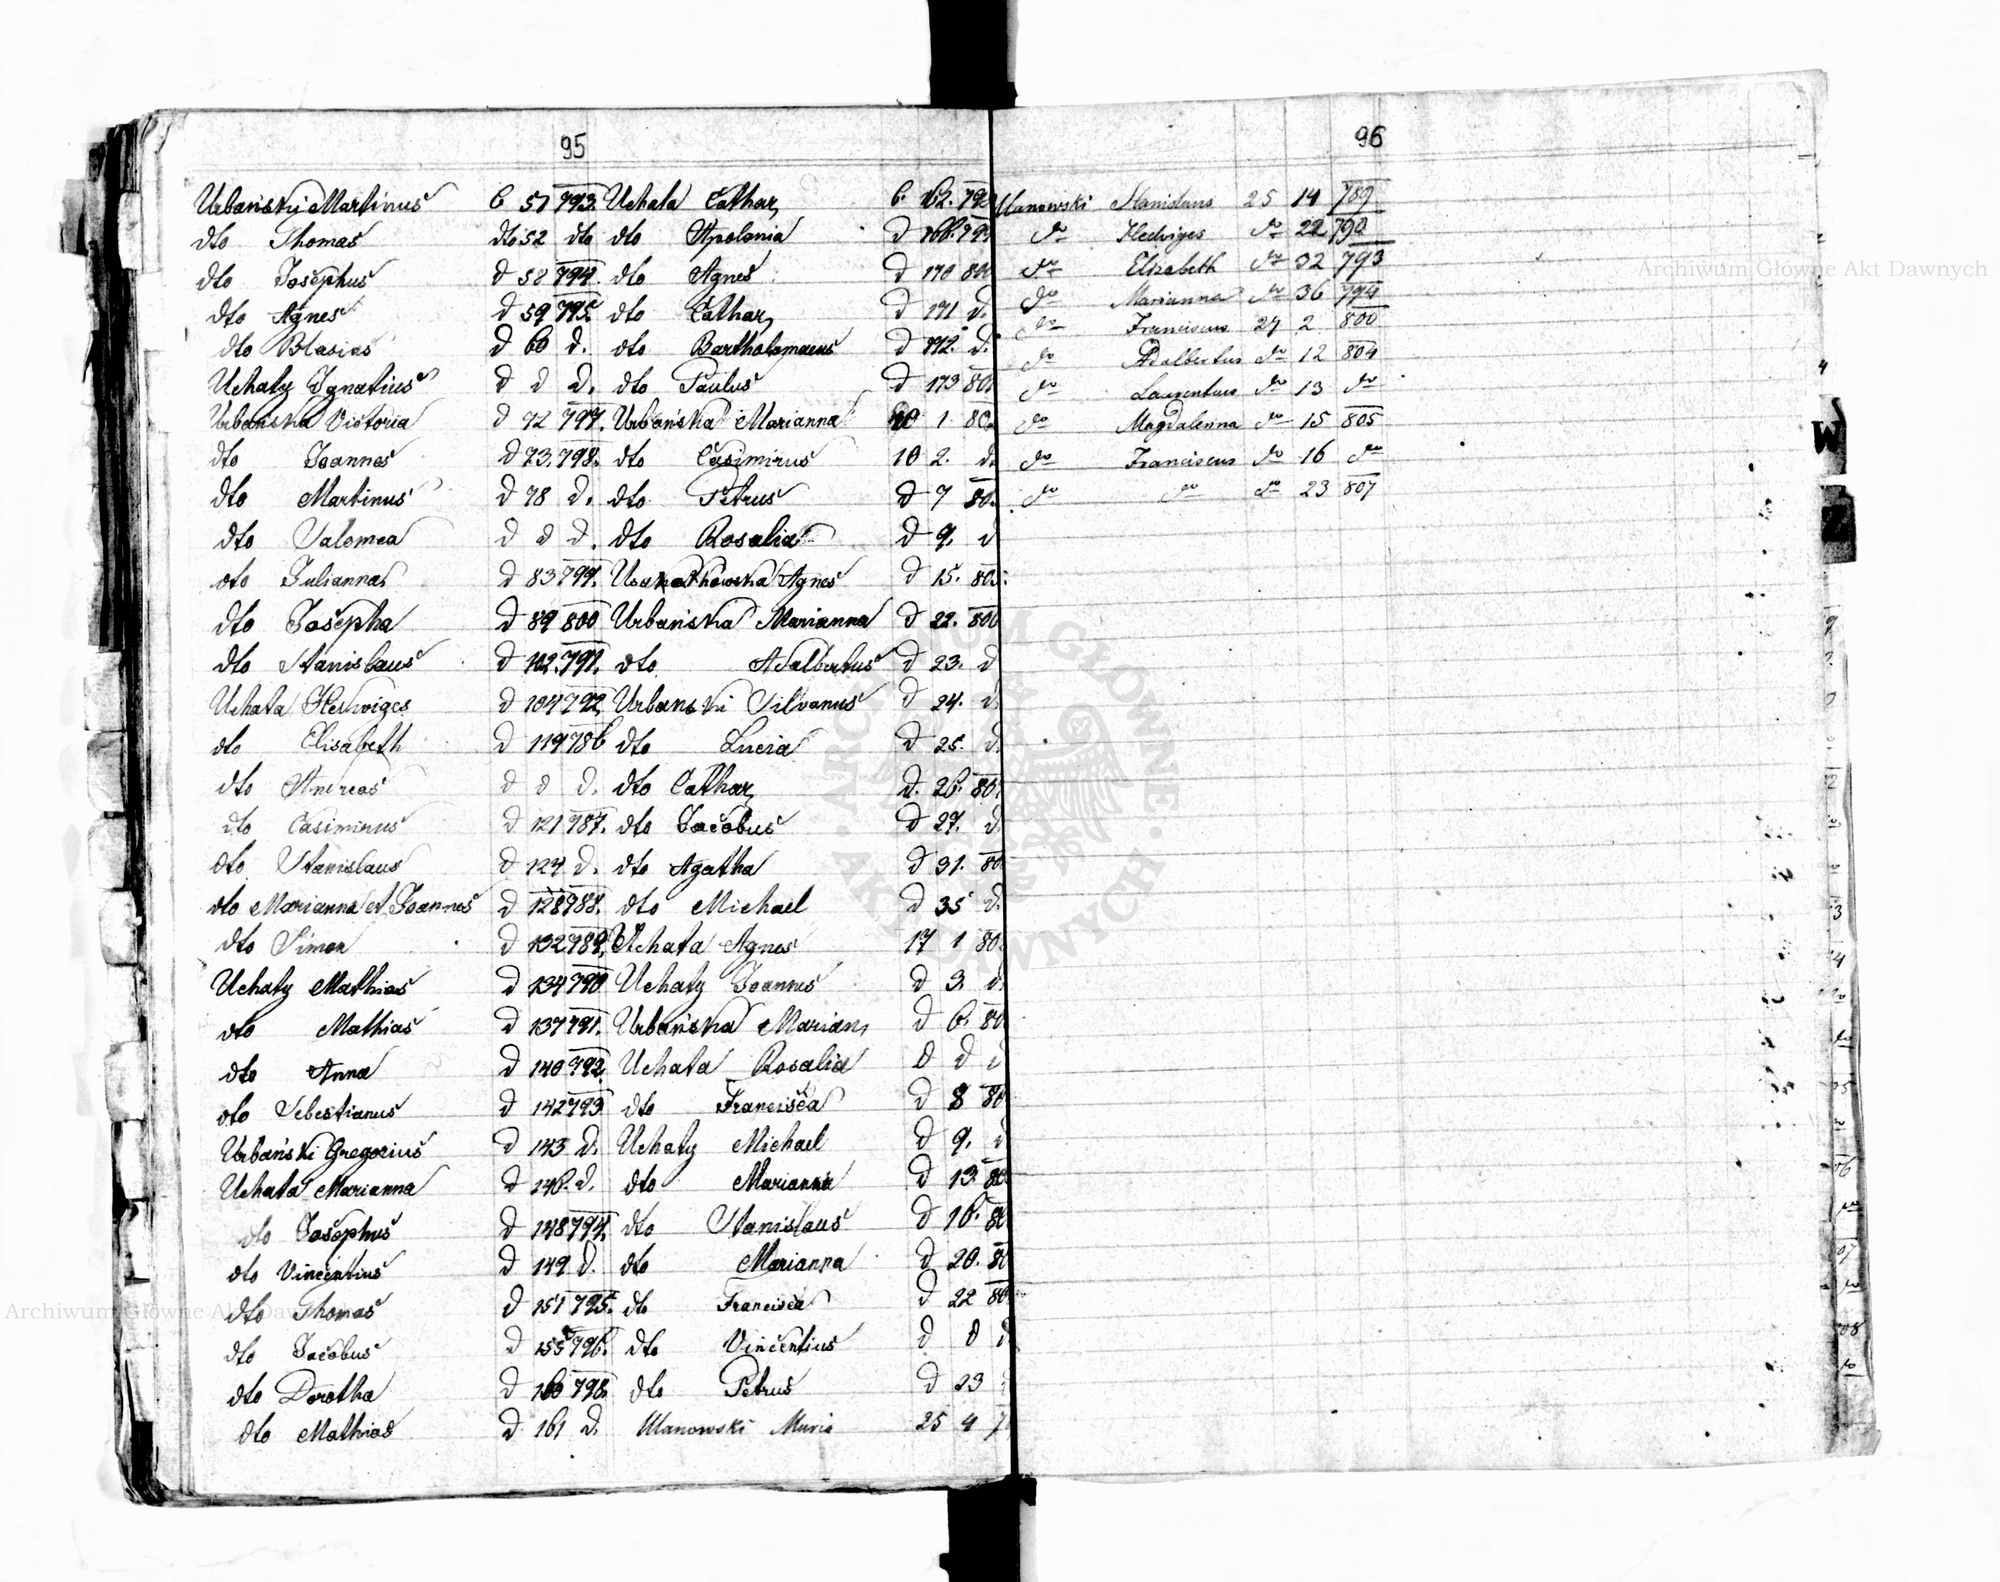 95
Urbański Martinus 6 51 793.
dto Thomas dto 52 dto
dto Josephus d 58 794.
dto Agnes d 59 795.
dto Blasius d 60 d.
Uchaty Ignatius d d d.
Urbańska Victoria d 72 797.
dto Joannes d 73. 798.
dto Martinus d 78 d.
dto Salomea d d d.
dto Julianna d 83 799.
dto Josepha d 89 800
dto Stanislaus d 102. 791.
Uchata Hedwiges d 104 792
dto Elisabeth d 119 786
dto Andreas d d d.
dto Casimirus d 121 787.
dto Stanislaus d 124 d.
dto Marianna et Joannes d 128 788.
dto Simon d 132 789.
Uchaty Mathias d 134 790
dto Mathias d 137 791.
dto Anna d 140 792
dto Sebestianus d 142 793
Urbański Gregorius d 143 d.
Uchata Marianna d 146. d.
dto Josephus d 148 794.
dto Vincentius d 149 d.
dto Thomas d 151 795.
dto Jacobus d 155 796.
dto Dorotha d 160 798.
dto Mathias d 161 d.
Uchata Cathar 6. 162. 79
dto Apolonia d 168. 79
dto Agnes d 170 80
dto Cathar d 171 d.
dto Bartholomaeus d 172. d.
dto Paulus d 173 80
Urbańska Marianna 10 1 80
dto Casimirus 10 2. d.
dto Petrus d 7 80.
dto Rosalia d 9. d
Agnes d 15. 80
Urbańska Marianna d 22. 80
dto Adalbertus d 23. d
Urbański Silvanus d 24. d
dto Lucia d 25. d.
dto Cathar d. 26. 80
dto Jacobus d 27. d.
dto Agatha d 31. 80
dto Michael d 35 d.
Uchata Agnes 17 1 80
Uchaty Joannes d 3. d.
Urbańska Mariann d 6. 80
Uchata Rosalia d d d
dto Francisca d 8 80
Uchaty Michael d 9. d
dto Marianna d 13 80
dto Stanislaus d 16. 80
dto Marianna d 20. 80
dto Francisca d 22 80
dto Vincentius d d d
dto Petrus d 23
Ulanowski Maria 25 4 7
96
Ulanowski Stanislaus 25 14 789
do Hedviges do 22 790
do Elizabeth do 32 793
do Marianna do 36 794
do Franciscus 27 2 800
do Adalbertus do 12 804
do Laurentius do 13 do
do Magdalenna do 15 805
do Franciscus do 16 do
do do do 23 807
W
Z
Archiwum Główne Akt Dawnych
Archiwum Główne Akt Dawnych